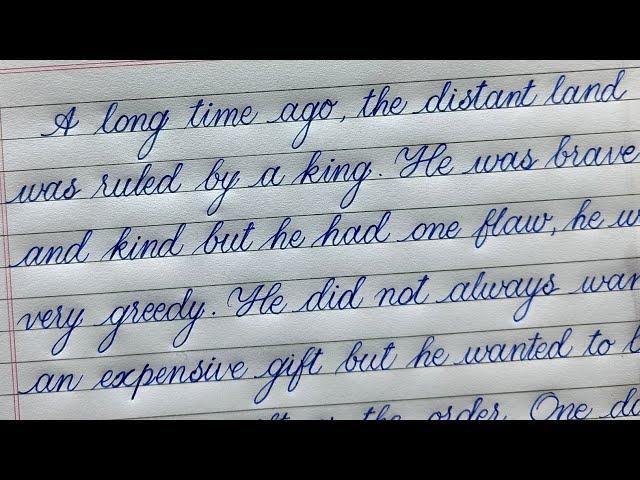 A long time ago, the distant land
was ruled by a king. He was brave
and kind but he had one flaw, he w
very greedy. He did not always wan
an expensive gift but he wanted to
the order. One da